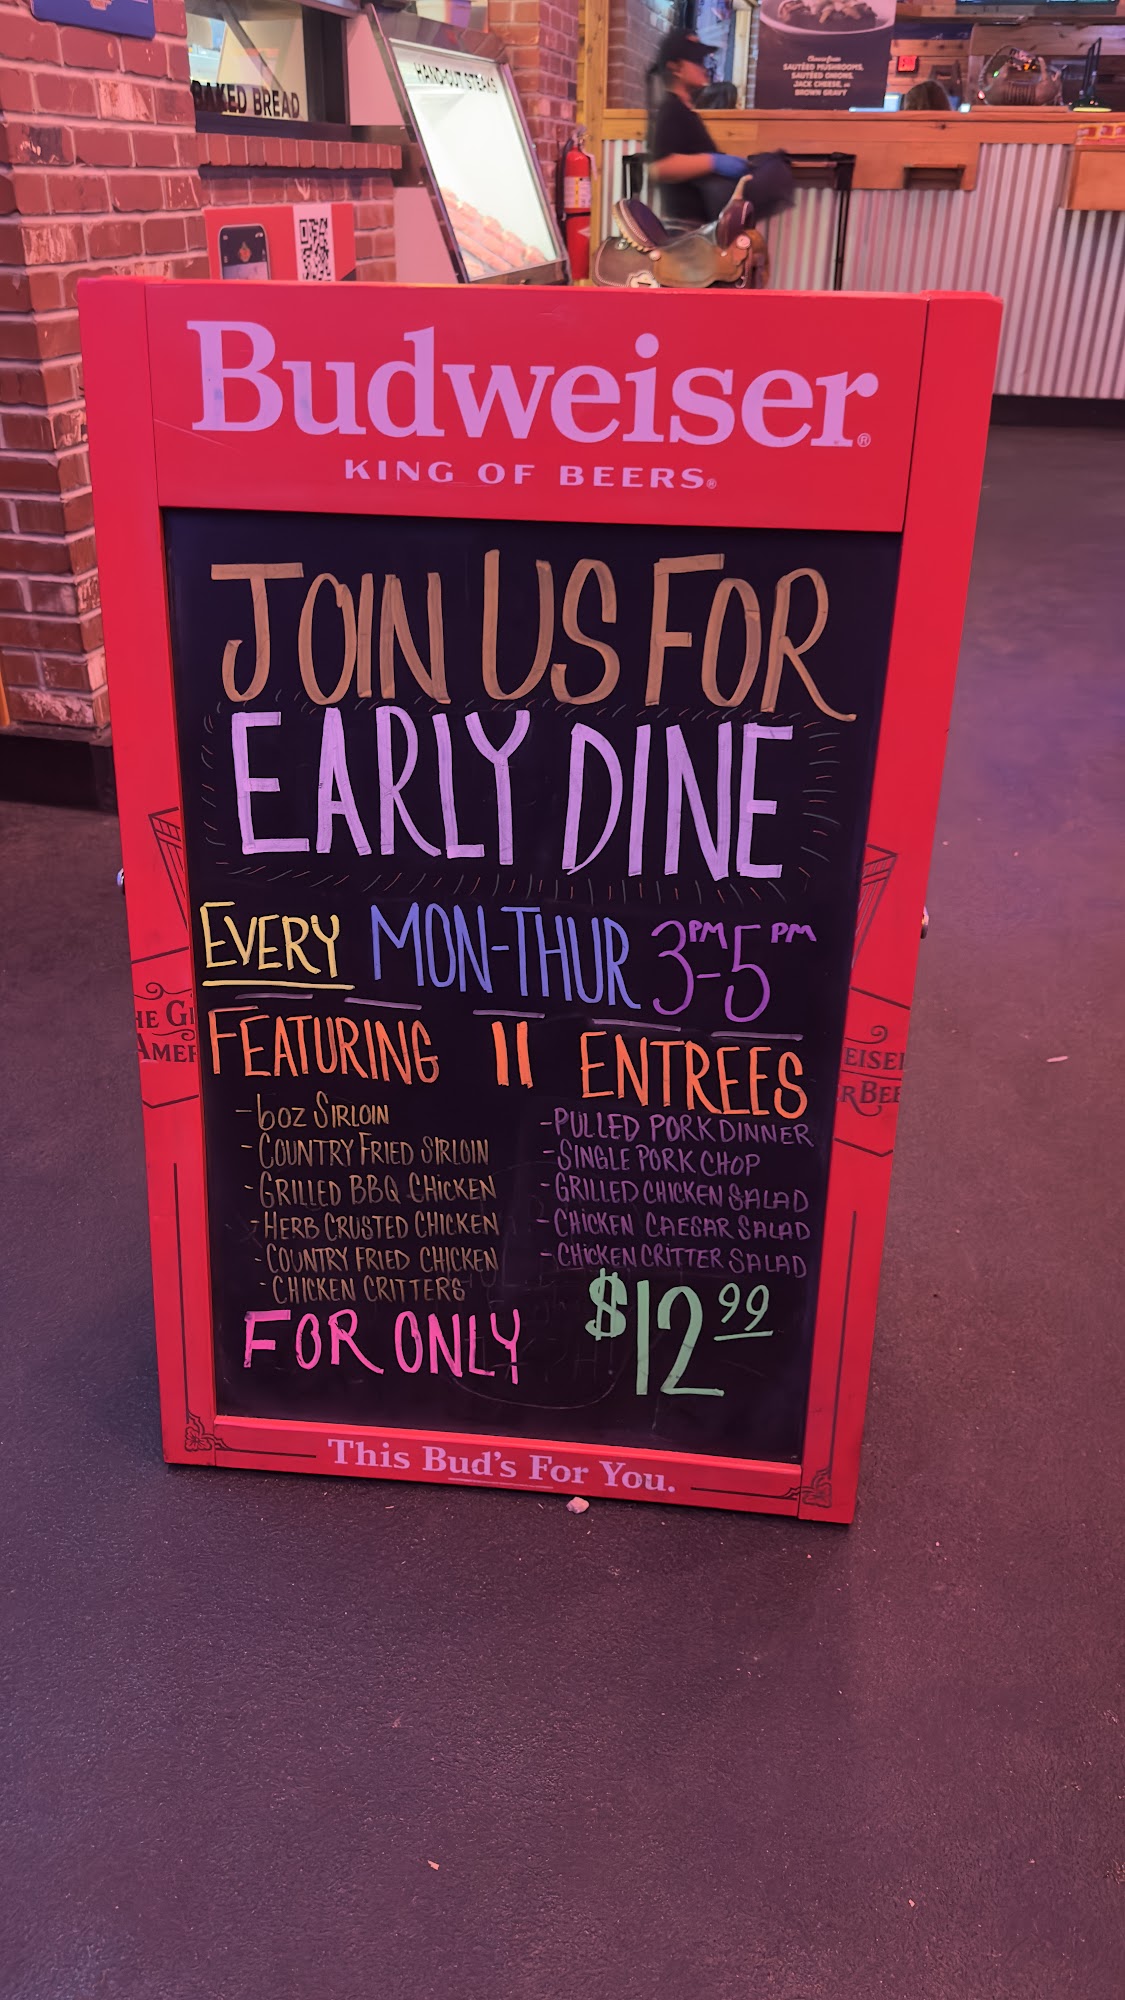 BAKED BREAD
HAND-CUT STEAKS
Choose from
SAUTÉED MUSHROOMS,
SAUTÉED ONIONS,
JACK CHEESE, or
BROWN GRAVY
Budweiser®
KING OF BEERS®
JOIN US FOR
EARLY DINE
EVERY MON-THUR 3PM-5PM
FEATURING 11 ENTREES
-6OZ SIRLOIN
-COUNTRY FRIED SIRLOIN
-GRILLED BBQ CHICKEN
-HERB CRUSTED CHICKEN
-COUNTRY FRIED CHICKEN
-CHICKEN CRITTERS
-PULLED PORK DINNER
-SINGLE PORK CHOP
-GRILLED CHICKEN SALAD
-CHICKEN CAESAR SALAD
-CHICKEN CRITTER SALAD
FOR ONLY $12.99
HE G
AMER
EISE
R BEE
This Bud's For You.